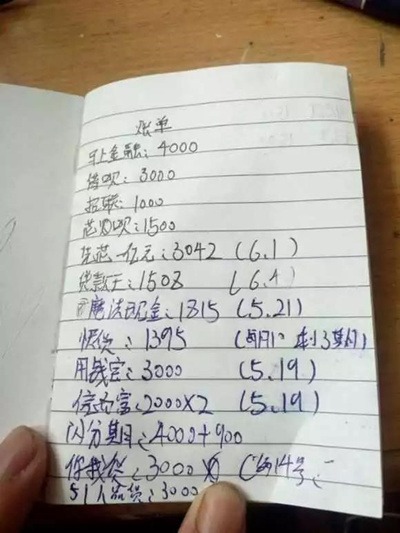 账单
马上金融：4000
借呗：3000
招联：1000
花呗：1500
先花一亿元：3042 (6.1)
贷款王：1508 (6.4)
魔法现金：1815 (5.21)
1395 (每月1
用钱宝：3000 (5.19)
2000×2 (5.19)
闪分期：4000+900
你我贷：3000 (每14号
51人品贷：3000